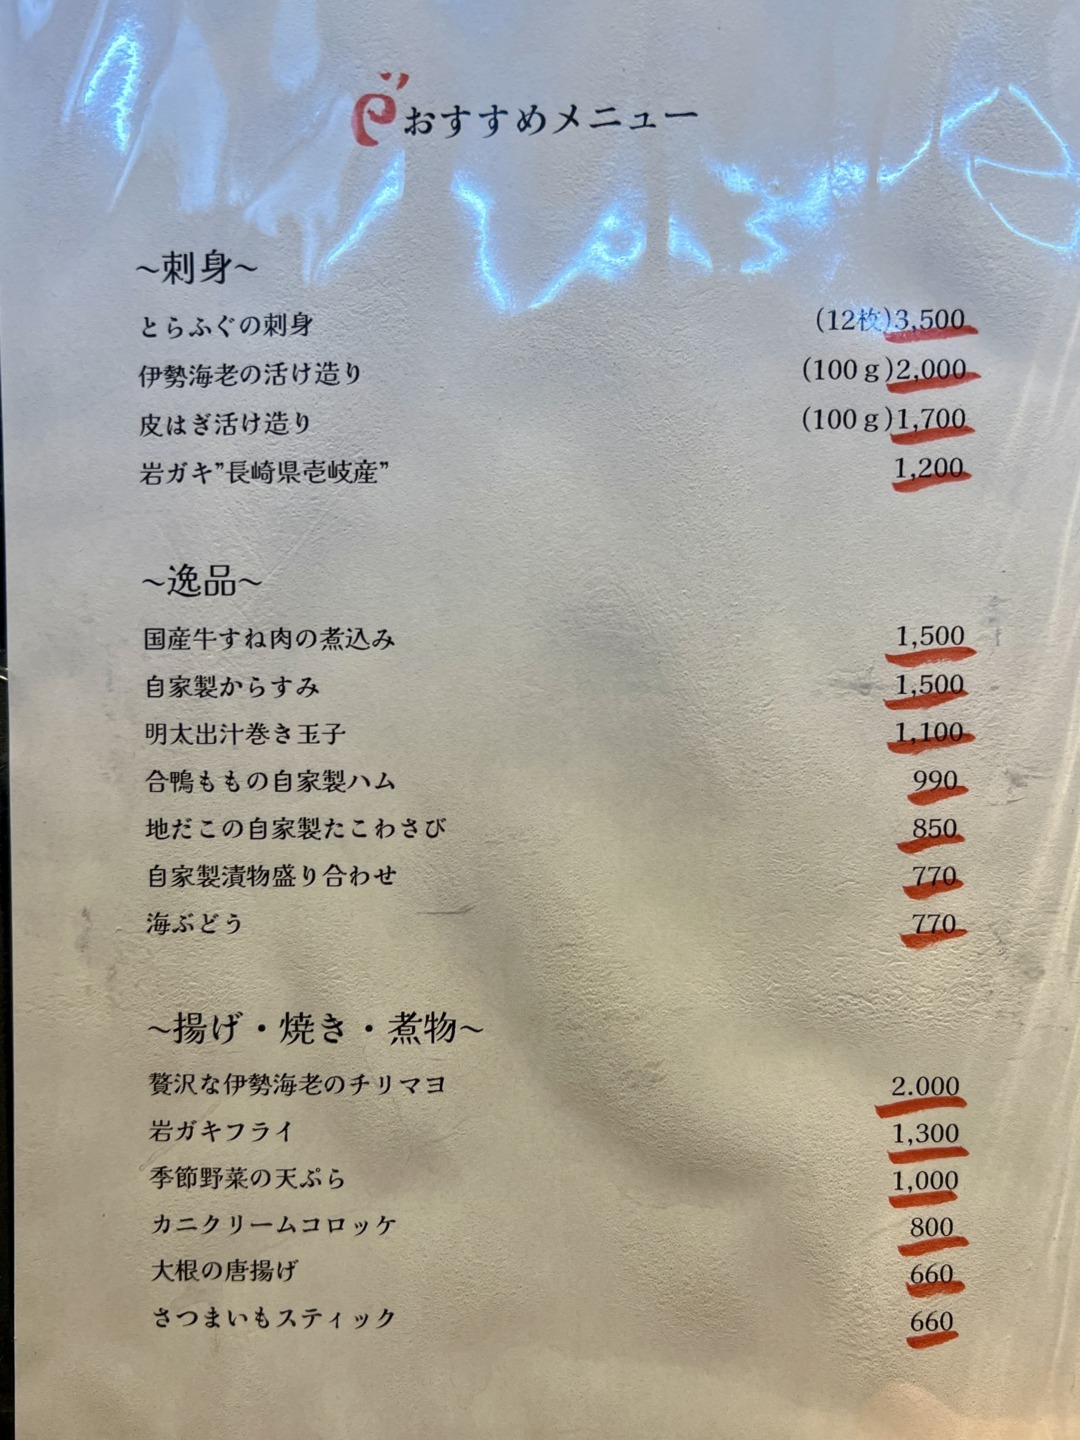 おすすめメニュー
~刺身~
とらふぐの刺身 (12枚)3,500
伊勢海老の活け造り (100ｇ)2,000
皮はぎ活け造り (100ｇ)1,700
岩ガキ”長崎県壱岐産” 1,200
~逸品~
国産牛すね肉の煮込み 1,500
自家製からすみ 1,500
明太出汁巻き玉子 1,100
合鴨ももの自家製ハム 990
地だこの自家製たこわさび 850
自家製漬物盛り合わせ 770
海ぶどう 770
~揚げ・焼き・煮物~
贅沢な伊勢海老のチリマヨ 2.000
岩ガキフライ 1,300
季節野菜の天ぷら 1,000
カニクリームコロッケ 800
大根の唐揚げ 660
さつまいもスティック 660